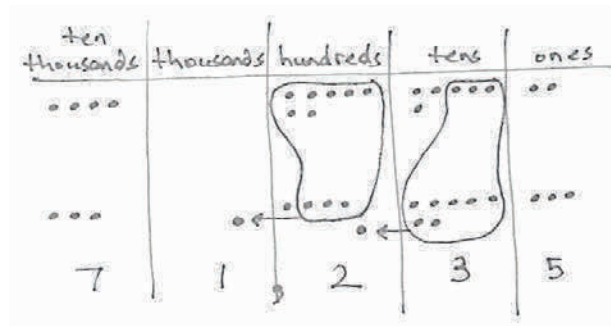 ten
thousands thousands hundreds tens ones
7 1 2 3 5